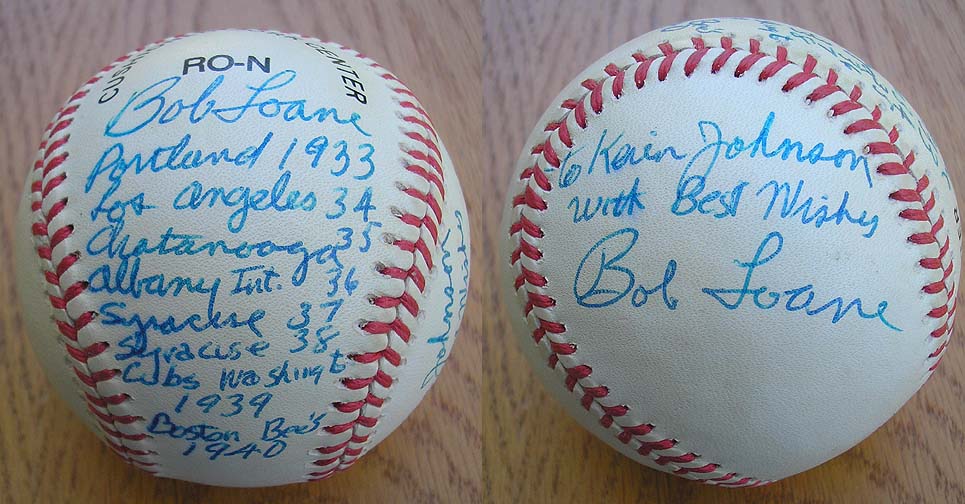 CUSH
RO-N
ENTER
Bob Loane
Portland 1933
Los Angeles 34
Chatanooga 35
Albany Int. 36
Syracise 37
Syracise 38
Cubs Washingt
1939
Boston Bee's
1940
Johnson
to Kevin Johnson
with Best Wishes
Bob Loane